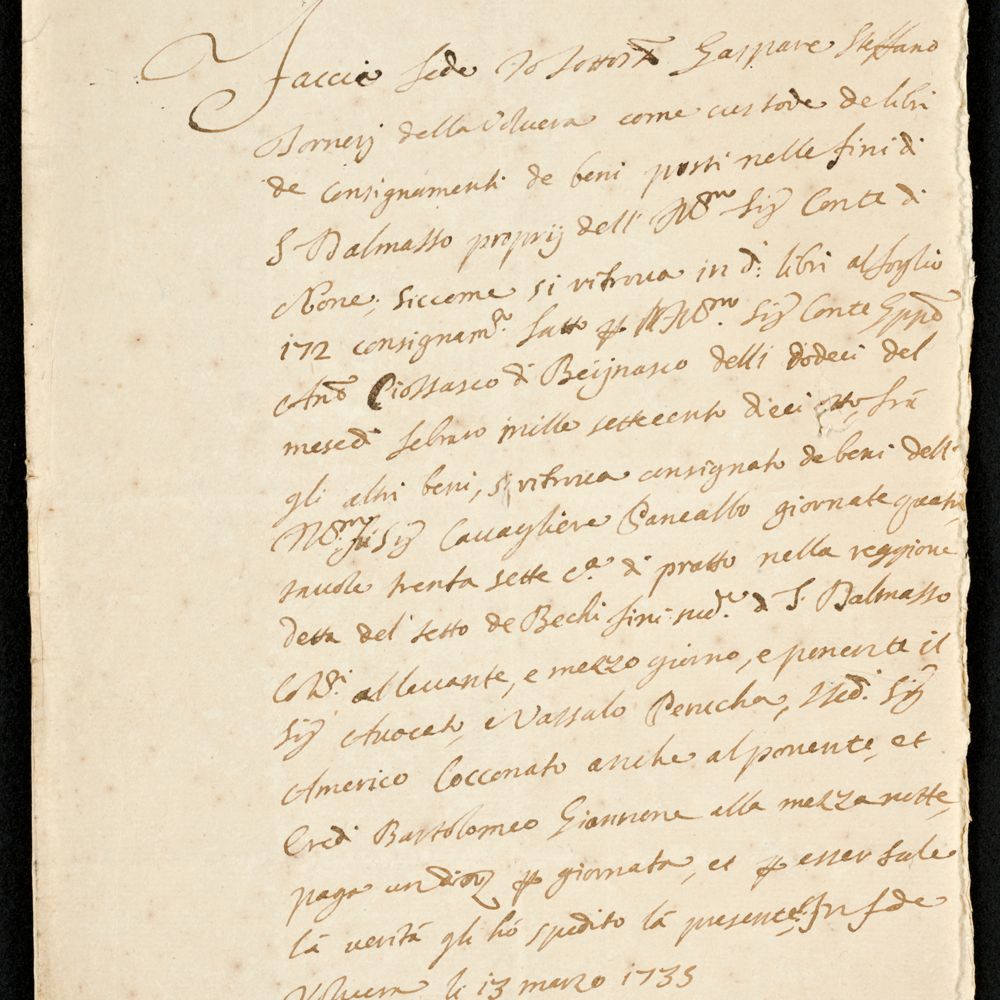 Faccio fede Io sottos.tt Gaspare Steffano
Bornerij della Volvera come custode de libri
de consignamenti de beni posti nelle fini di
S Dalmasso proprij dell' Ill.mo Sig Conte di
None, siccome si ritrova in d: libri al foglio
172 consignam.to fatto p Ill.mo Sig Conte
Piossasco di Beijnasco delli dodeci del
mese di febraro mille settecento dieci otto, frà
gli altri beni, si ritrova consignato de beni dell'
Ill.mo fù Sig Cavagliere Pancalbo giornate quatro
tavole trenta sette c.a di pratto nella reggione
detta del setto de Bechi fini sud.e di S. Dalmasso
al levante, e mezzo giorno, e ponente il
Sig Avocato, e Vassalo Perucha, Sig
Americo Cocconato anche al ponente, et
Eredi Bartolomeo Giannone alla mezza notte,
paga un p giornata, et p esser tale
la verità gli hò spedito là presente. In fede
Volvera li 13 marzo 1735